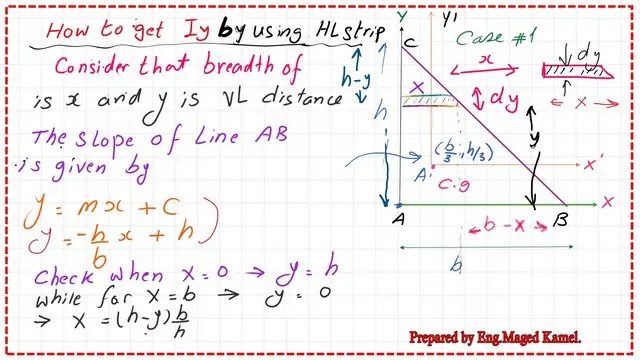 How to get Iy by using HL strip
Consider that breadth of
is x and y is VL distance
The Slope of Line AB
is given by
y = mx + C
y = -h/b x + h
Check when x = 0 → y = h
while for x = b → y = 0
→ x = (h-y) b/h
Y
Y'
Case #1
C
h-y
h
x
dy
x
dy
x
y
(b/3, h/3)
A'
C.g
x'
A
B
X
b - x
b
Prepared by Eng.Maged Kamel.